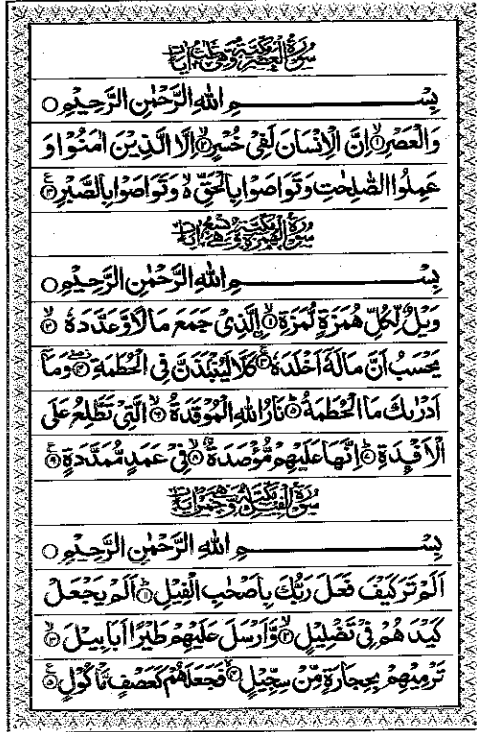 سُوْرَةُ الْعَصْرِ مَكِّيَّةٌ وَّهِيَ ثَلٰثُ اٰيَاتٍ
بِسْــــــــــــمِ اللّٰهِ الرَّحْمٰنِ الرَّحِيْمِ ○
وَالْعَصْرِ ۙ﴿۱﴾ اِنَّ الْاِنْسَانَ لَفِيْ خُسْرٍ ۙ﴿۲﴾ اِلَّا الَّذِيْنَ اٰمَنُوْا وَ
عَمِلُوا الصّٰلِحٰتِ وَتَوَاصَوْا بِالْحَقِّ ۙ وَتَوَاصَوْا بِالصَّبْرِ ﴿۳﴾
سُوْرَةُ الْهُمَزَةِ مَكِّيَّةٌ وَّهِيَ تِسْعُ اٰيَاتٍ
بِسْــــــــــــمِ اللّٰهِ الرَّحْمٰنِ الرَّحِيْمِ ○
وَيْلٌ لِّكُلِّ هُمَزَةٍ لُّمَزَةِ ۙ﴿۱﴾ اِلَّذِيْ جَمَعَ مَالًا وَّعَدَّدَهٗ ۙ﴿۲﴾
يَحْسَبُ اَنَّ مَالَهٗٓ اَخْلَدَهٗ ۚ﴿۳﴾ كَلَّا لَيُنْۢبَذَنَّ فِي الْحُطَمَةِ ﴿۴﴾ وَمَآ
اَدْرٰىكَ مَا الْحُطَمَةُ ؕ﴿۵﴾ نَارُ اللّٰهِ الْمُوْقَدَةُ ۙ﴿۶﴾ الَّتِيْ تَطَّلِعُ عَلَى
الْاَفْـِٕدَةِ ؕ﴿۷﴾ اِنَّهَا عَلَيْهِمْ مُّؤْصَدَةٌ ۙ﴿۸﴾ فِيْ عَمَدٍ مُّمَدَّدَةٍ ﴿۹﴾
سُوْرَةُ الْفِيْلِ مَكِّيَّةٌ وَّهِيَ خَمْسُ اٰيَاتٍ
بِسْــــــــــــمِ اللّٰهِ الرَّحْمٰنِ الرَّحِيْمِ ○
اَلَمْ تَرَ كَيْفَ فَعَلَ رَبُّكَ بِاَصْحٰبِ الْفِيْلِ ؕ﴿۱﴾ اَلَمْ يَجْعَلْ
كَيْدَهُمْ فِيْ تَضْلِيْلٍ ۙ﴿۲﴾ وَّاَرْسَلَ عَلَيْهِمْ طَيْرًا اَبَابِيْلَ ۙ﴿۳﴾
تَرْمِيْهِمْ بِحِجَارَةٍ مِّنْ سِجِّيْلٍ ۪ۙ﴿۴﴾ فَجَعَلَهُمْ كَعَصْفٍ مَّاْكُوْلٍ ﴿۵﴾